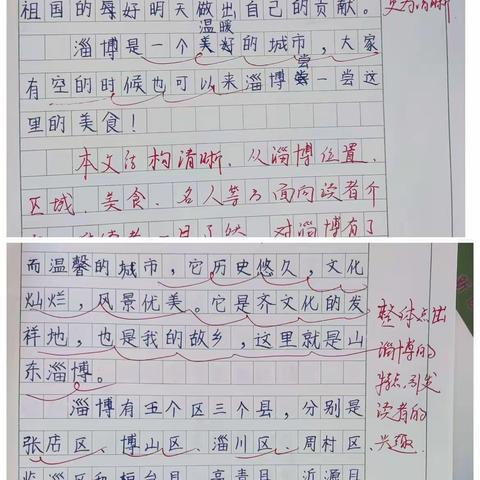 祖国的辱好明天做出自己的贡献。
更为清晰
温暖
淄博是一个美好的城市，大家
有空的时候也可以来淄博尝一尝这
里的美食！
本文结构清晰，从淄博位置、
区域、美食、名人等方面向读者介
一目了然，对淄博有了
而温馨的城市，它历史悠久，文化
灿烂，风景优美。它是齐文化的发
祥地，也是我的故乡，这里就是山
东淄博。
整体点出
淄博的
特点，引发
读者的
兴趣
淄博有五个区三个县，分别是
张店区、博山区、淄川区、周村区、
临淄区和桓台县、高青县、沂源县